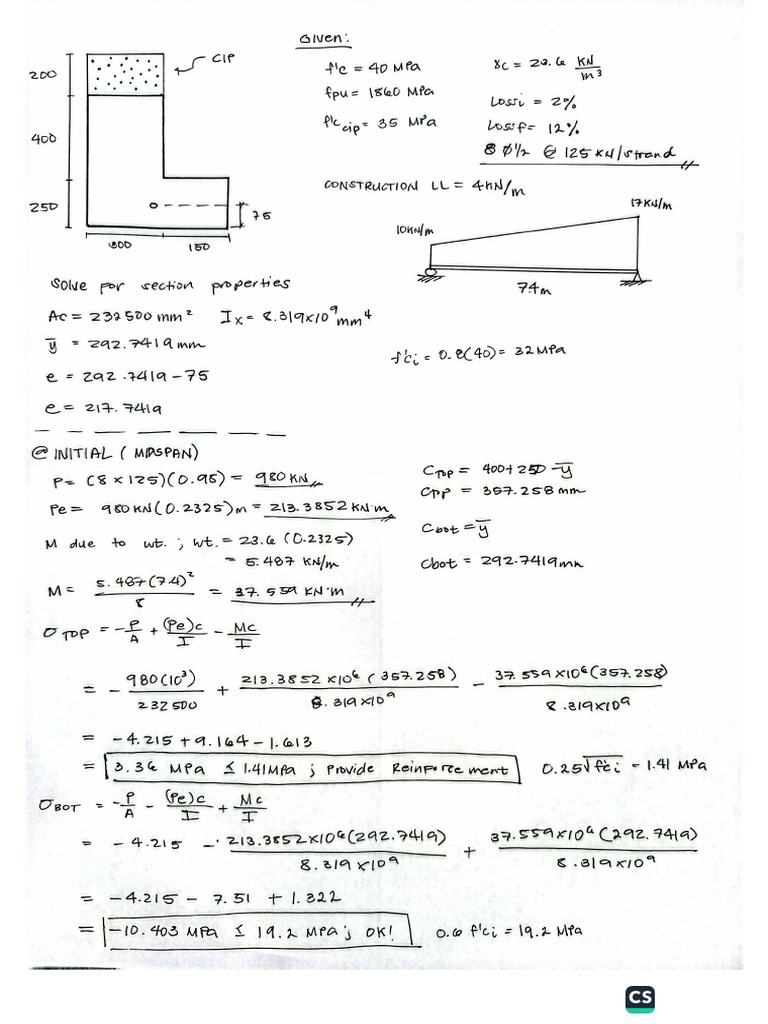 Given:
CIP
200
400
250
75
300
150
f'c = 40 MPa
γc = 23.6 KN/m³
fpu = 1860 MPa
Lossi = 2%
f'c cip = 35 MPa
Lossf = 12%
8 Ø1/2 @ 125 KN/strand
CONSTRUCTION LL = 4KN/m
10KN/m
17KN/m
7.4m
Solve for section properties
Ac = 232500 mm² Ix = 8.319x10⁹ mm⁴
y̅ = 292.7419 mm
f'ci = 0.8(40) = 32 MPa
e = 292.7419 - 75
e = 217.7419
@ INITIAL (MIDSPAN)
P = (8 x 125)(0.98) = 980 KN
Pe = 980KN(0.2325)m = 213.3852 KN·m
M due to wt. ; wt. = 23.6 (0.2325)
= 5.487 KN/m
M = 5.487(7.4)²/8 = 37.559 KN·m
CTOP = 400+250 - y̅
CTOP = 357.258 mm
Cbot = y̅
Cbot = 292.7419mm
σTOP = -P/A + (Pe)c/I - Mc/I
= - 980(10³)/232500 + 213.3852 x10⁶ (357.258)/8.319x10⁹ - 37.559x10⁶(357.258)/8.319x10⁹
= -4.215 + 9.164 - 1.613
= 3.36 MPa ≤ 1.41MPa ; Provide Reinforcement
0.25√f'ci = 1.41 MPa
σBOT = -P/A - (Pe)c/I + Mc/I
= -4.215 - 213.3852x10⁶(292.7419)/8.319x10⁹ + 37.559x10⁶(292.7419)/8.319x10⁹
= -4.215 - 7.51 + 1.322
= -10.403 MPa ≤ 19.2 MPa ; OK!
0.6 f'ci = 19.2 MPa
CS